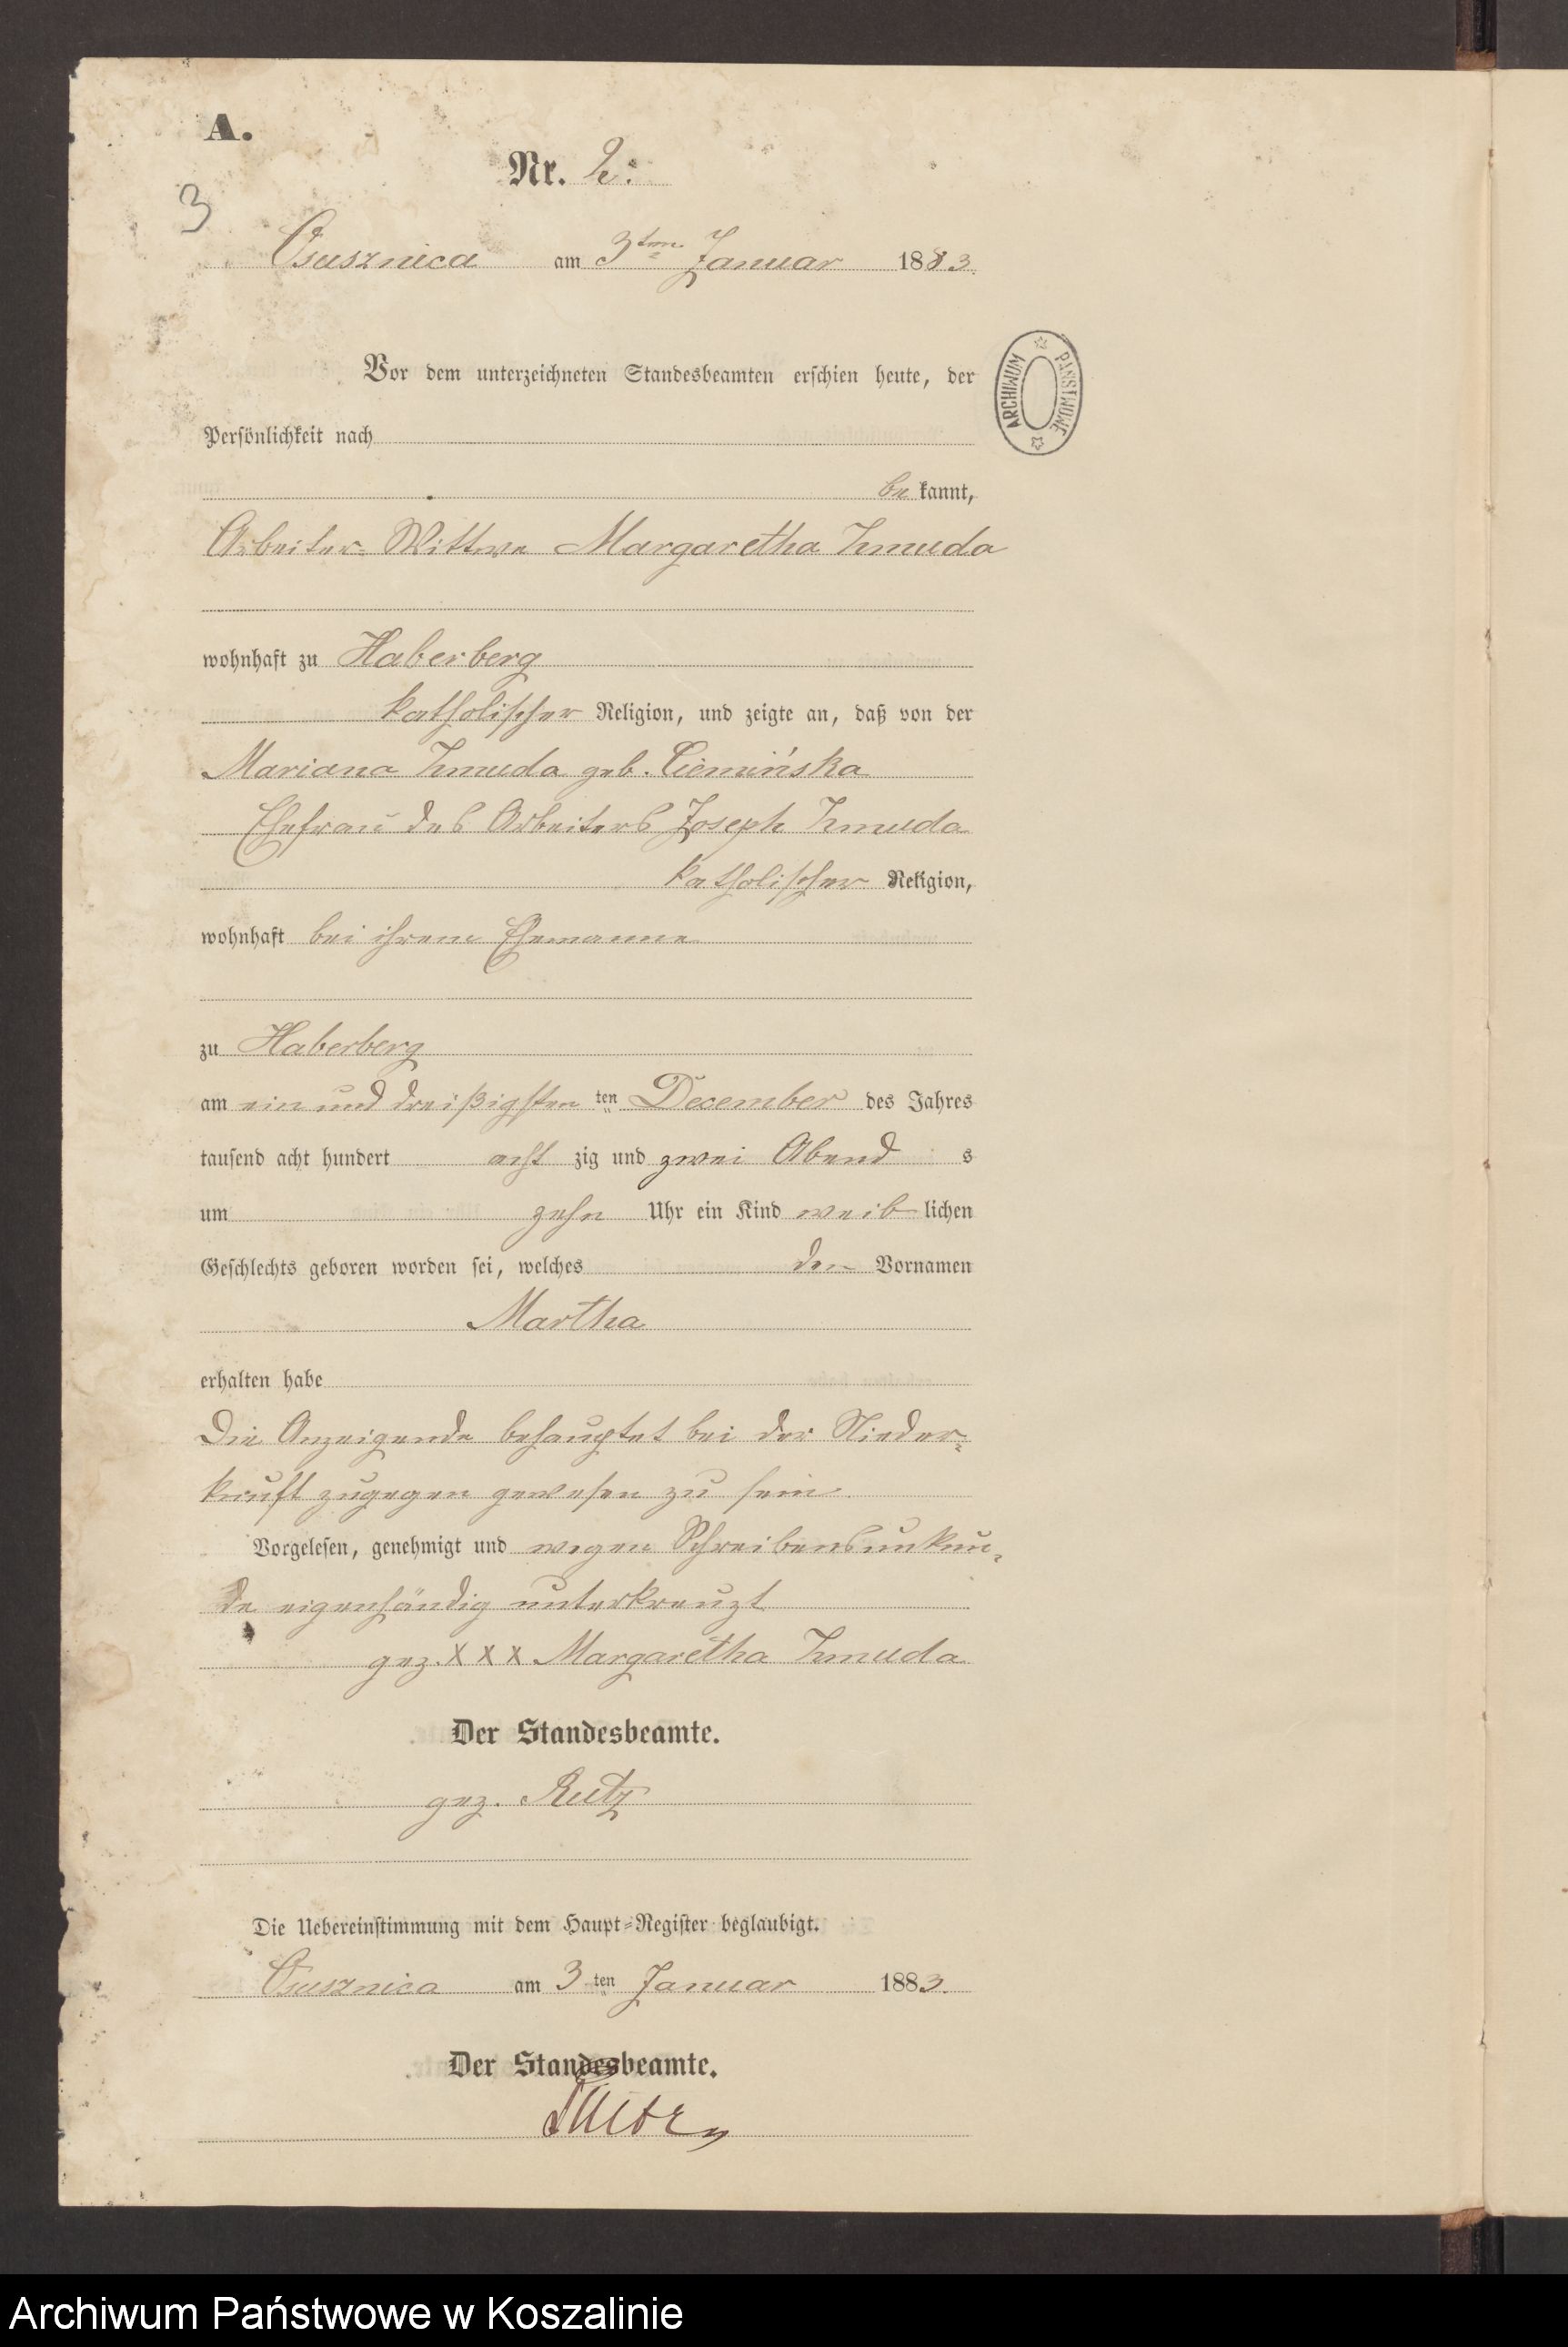 A.
Nr. 2.
3
Osusznica am 3ten Januar 1883.
Vor dem unterzeichneten Standesbeamten erschien heute, der
Persönlichkeit nach
be kannt,
ARCHIWUM PAŃSTWOWE
Arbeiter-Wittwe Margaretha Zmuda
wohnhaft zu Haberberg
katholischer Religion, und zeigte an, daß von der
Mariana Zmuda geb. Ciemińska
Ehefrau des Arbeiters Joseph Zmuda
katholischer Religion,
wohnhaft bei ihrem Ehemanne
zu Haberberg
am ein und dreißigsten ten December des Jahres
tausend acht hundert acht zig und zwei Abend s
um zehn Uhr ein Kind weib lichen
Geschlechts geboren worden sei, welches den Vornamen
Martha
erhalten habe
Die Anzeigende behauptet bei der Nieder-
kunft zugegen gewesen zu sein.
Vorgelesen, genehmigt und wegen Schreibensunkun-
de eigenhändig unterkreuzt
gez. X X X Margaretha Zmuda
Der Standesbeamte.
gez. Rutz
Die Uebereinstimmung mit dem Haupt-Register beglaubigt.
Osusznica am 3 ten Januar 1883.
Der Standesbeamte.
Rutz
Archiwum Państwowe w Koszalinie